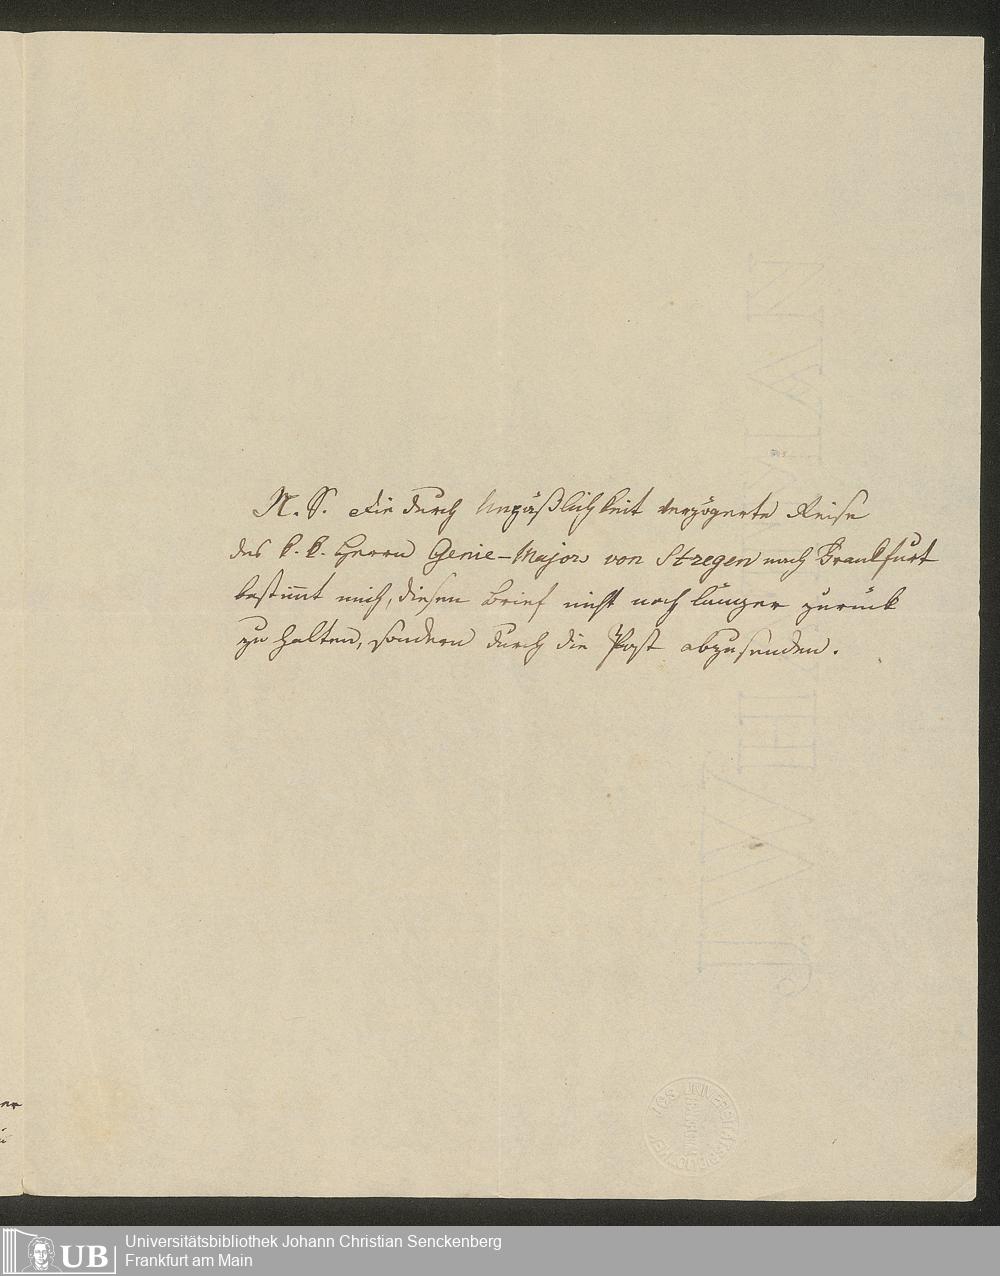 N. S. Die durch Unpäßlichkeit verzögerte Reise
des k. k. Herrn Genie-Major von Stregen nach Frankfurt
bestimt mich, diesen Brief nicht noch länger zurück
zu halten, sondern durch die Post abzusenden.
J WHATMAN
UB
Universitätsbibliothek Johann Christian Senckenberg
Frankfurt am Main